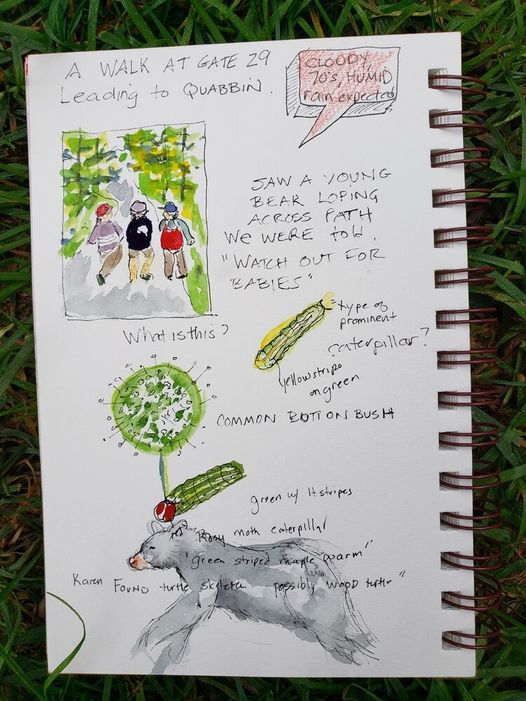 A WALK AT GATE 29
Leading to QUABBIN.
CLOUDY
70's, HUMID
rain expected
SAW A YOUNG
BEAR LOPING
ACROSS PATH
We WERE told.
"WATCH OUT FOR
BABIES"
What is this?
type of
prominent
caterpillar?
yellow stripe
on green
COMMON BUTTON BUSH
green w/ lt stripes
Rosy moth caterpillar
"green striped maple worm"
Karen FOUND turtle skeleton possibly "wood turtle"